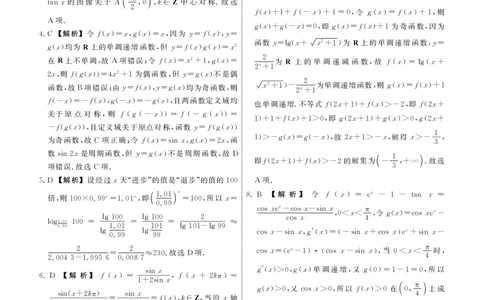 tan x 的图象关于 A(  /2,0),k∈Z 中心对称.故选
A项.
4.C 【解析】令 f(x)=x,g(x)=x,因为 y=f(x),y=
g(x)均为 R 上的单调递增函数,但 y=f(x)g(x)=x²
在 R 上不单调,故 A 项错误;令 f(x)=x²+1,g(x)=
2x,则 f(g(x))=4x²+1 为偶函数,但 y=g(x)不是偶
函数,故 B 项错误;由 y=f(x),y=g(x)均为奇函数,则
f(-x)=-f(x),g(-x)=-g(x),且两函数定义域均
关于原点对称,则 f(g(-x))=f(-g(x))=
-f(g(x)),且定义域关于原点对称,函数 y=f(g(x))
为奇函数,故 C 项正确;令 f(x)=sin x,g(x)=2x,函
数 sin 2x 是周期函数,但 y=g(x)不是周期函数,故 D
项错误.故选 C 项.
5.D 【解析】设经过 x 天“进步”的值是“退步”的值的 100
倍,则 100×0.99ˣ=1.01ˣ,即(1.01/0.99)ˣ=100,所以 x=
log_{1.01/0.99} 100 = lg 100/lg (1.01/0.99) = lg 100/lg (101/99) = 2/(lg 101-lg 99) ≈
2/(2.004 3-1.995 6) = 2/0.008 7 ≈230.故选 D 项.
6.D 【解析】 f(x) = sin x/(1+2sin x), f(x+2kπ) =
sin(x+2kπ) = sin x =f(x),k∈Z,当沿 x 轴
f(x)+1+f(-x)+1=0,令 g(x)=f(x)+1,则
g(x)+g(-x)=0,即 g(x)=f(x)+1 为奇函数,因为
函数 y=lg(x+√(x²+1))为 R 上的单调递增函数,y=
2/(2ˣ+1) 为 R 上的单调递减函数,故 f(x)=lg(x+
√(x²+1))-2/(2ˣ+1)为单调递增函数,则 g(x)=f(x)+1
也单调递增.不等式 f(2x+1)+f(x)>-2,即 f(2x+
1)+1+f(x)+1>0,即 g(2x+1)+g(x)>0,g(2x+
1)>-g(x)=g(-x),故 2x+1>-x,解得 x>-1/3,
即 f(2x+1)+f(x)>-2 的解集为(-1/3,+∞).故选
A项.
8.B 【解析】令 f(x) = eˣ - 1 - tan x =
(cos xeˣ-cos x-sin x)/cos x,0<x<π/4,令 g(x)=cos xeˣ-
cos x-sin x,g′(x)=(-sin x+cos x)eˣ+sin x-
cos x=(eˣ-1)·(cos x-sin x),当 0<x<π/4 时,
g′(x)>0,g(x)单调递增,又 g(0)=1-1=0,所以
g(x)>0,又 cos x>0,所以 f(x)>0 在(0,π/4)上成